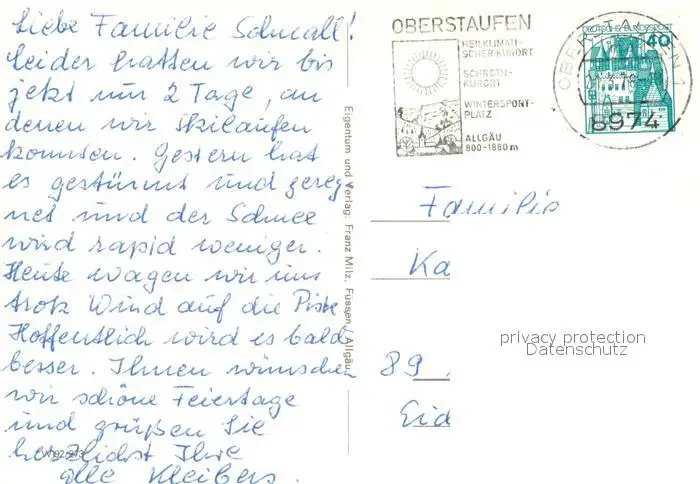 Liebe Familie Schmall!
leider hatten wir bis
jetzt nur 2 Tage, an
denen wir Skilaufen
konnten. Gestern hat
es gestürmt und gereg
net und der Schnee
wird rapid weniger.
Heute wagen wir uns
trotz Wind auf die Piste
Hoffentlich wird es bald
besser. Ihnen wünschen
wir schöne Feiertage
und grüßen Sie
herzlichst Ihre
alle Kleibers.
Eigentum und Verlag: Franz Milz, Füssen / Allgäu
OBERSTAUFEN
HEILKLIMATI-
SCHER-KURORT
SCHROTH-
KURORT
WINTERSPORT-
PLATZ
ALLGÄU
800-1880 m
DEUTSCHE BUNDESPOST
40
OBERSTAUFEN 1
8974
Familie
Ka
89
Eid
privacy protection
Datenschutz